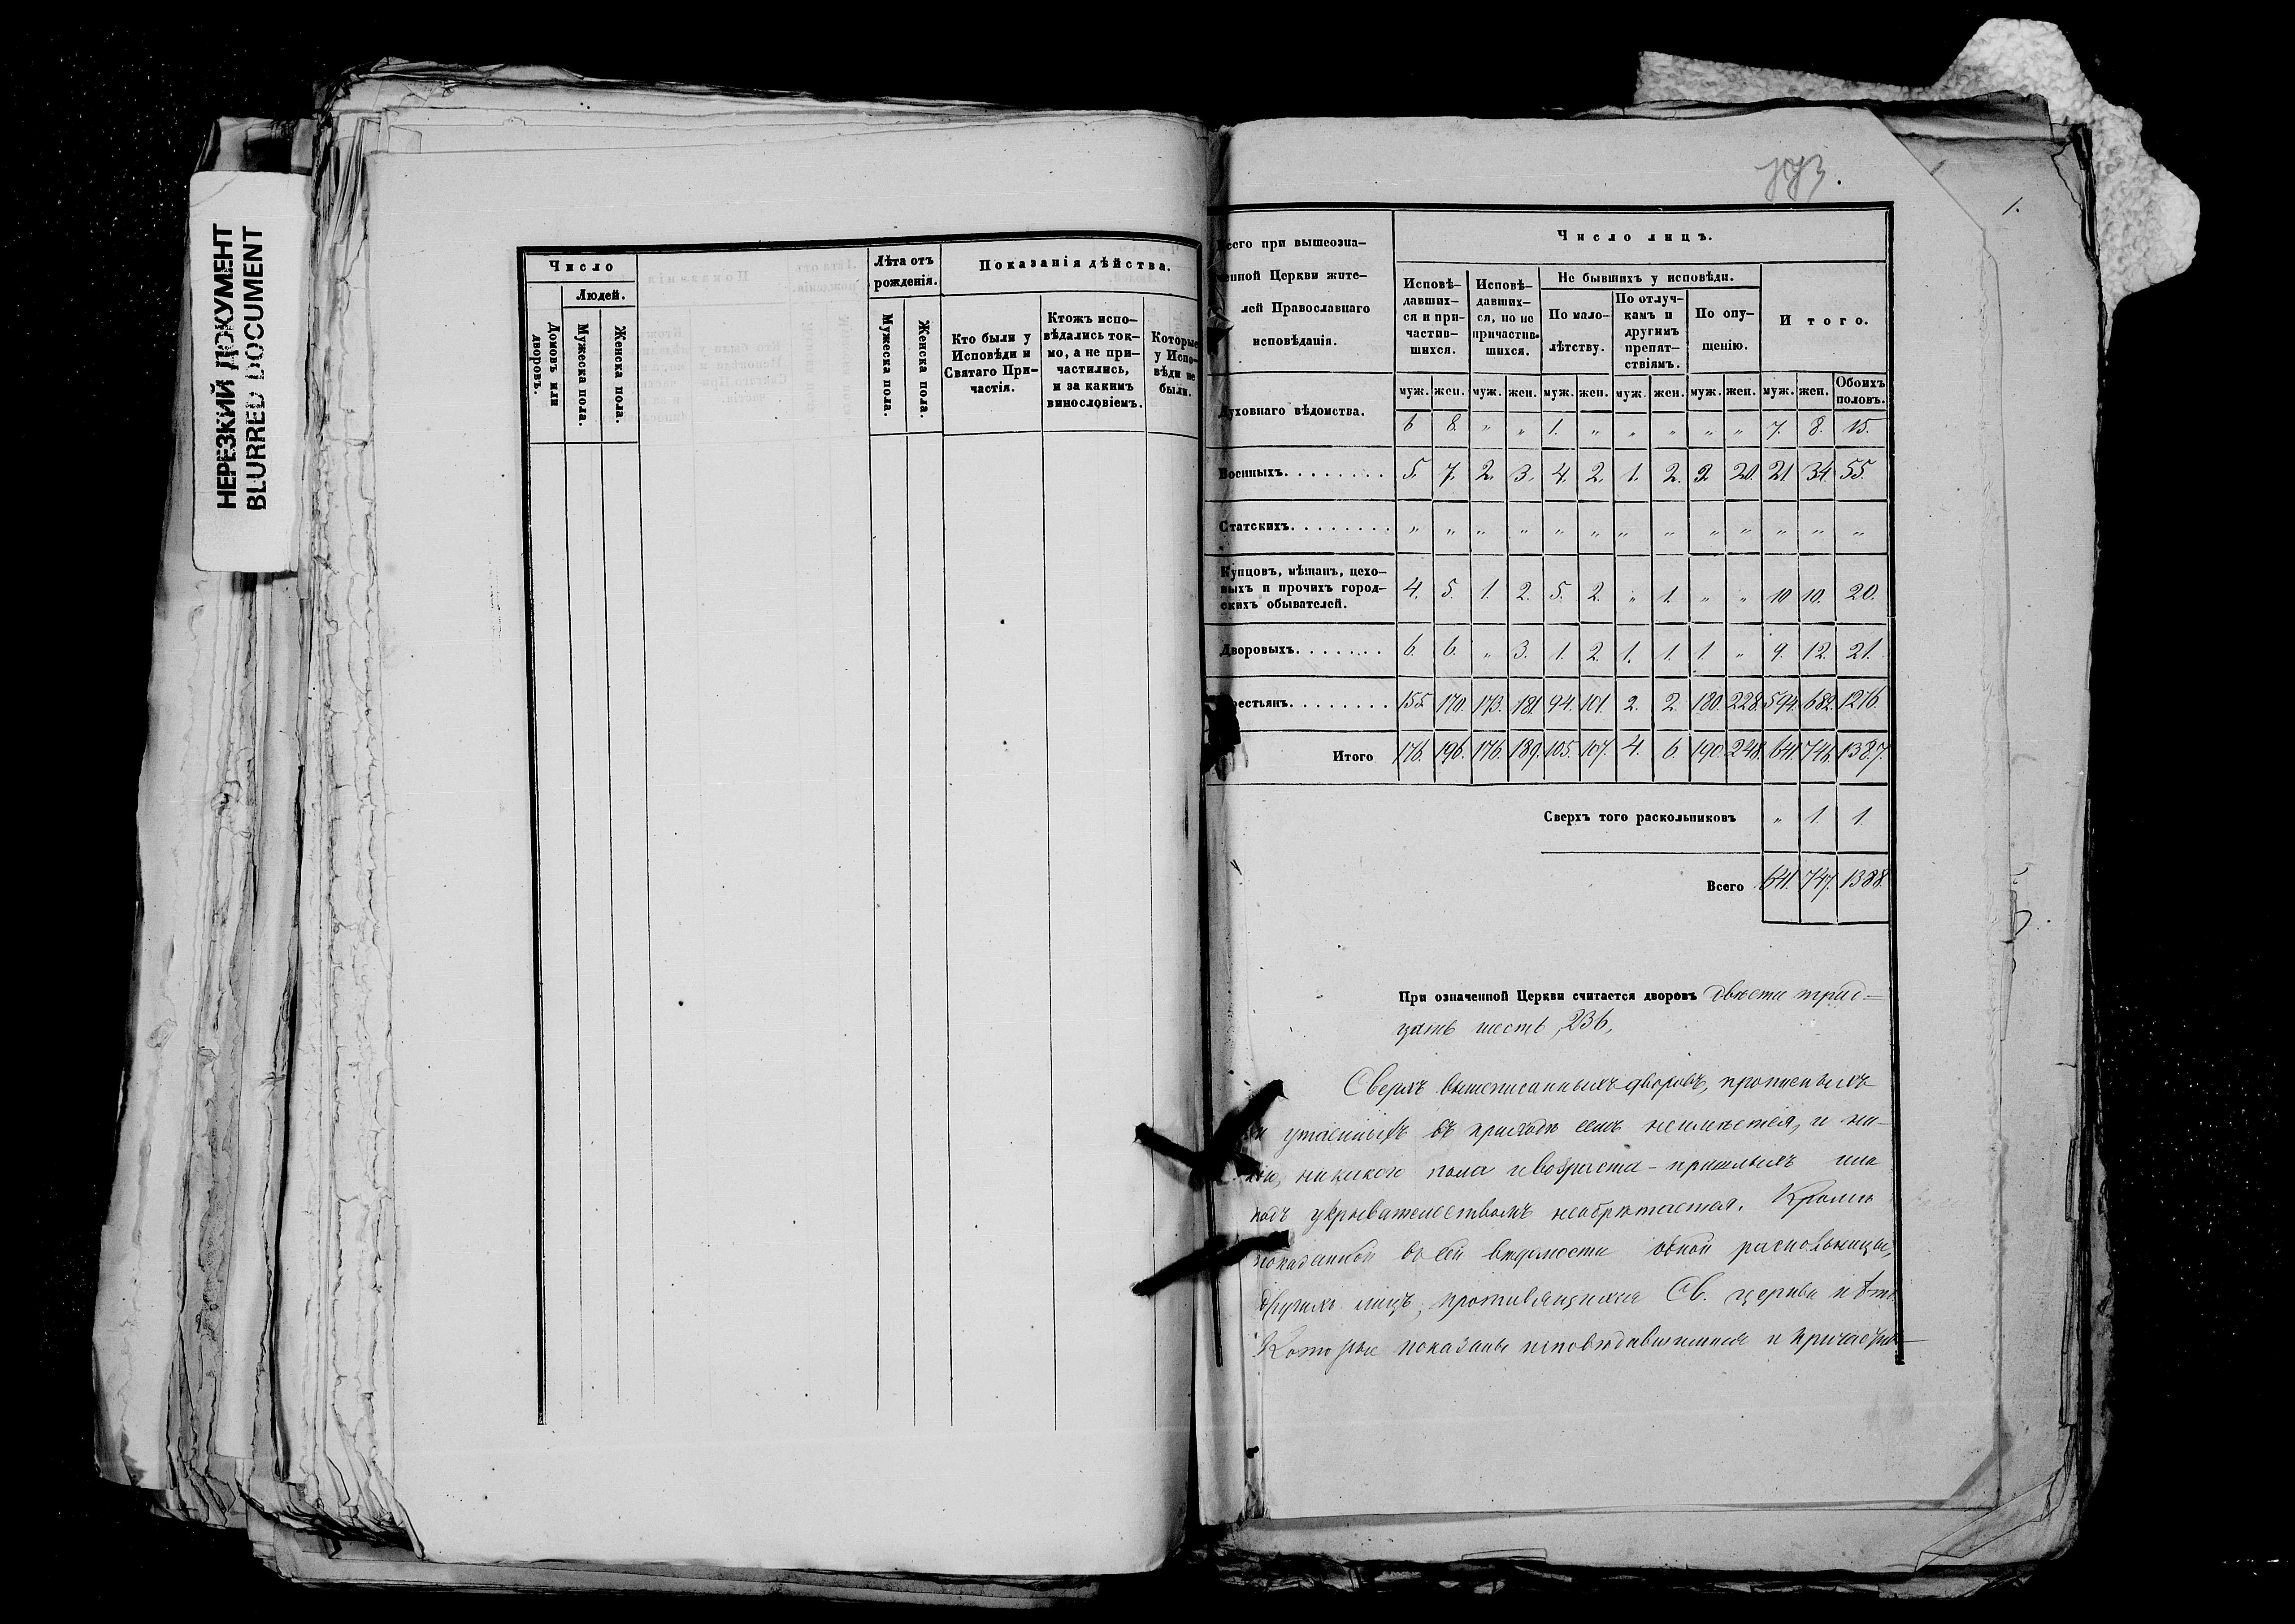 НЕРЕЗКИЙ ДОКУМЕНТ
BLURRED DOCUMENT
Число
Людей.
Домовъ или дворовъ.
Мужеска пола.
Женска пола.
Лѣта отъ рожденія.
Мужеска пола.
Женска пола.
Показанія дѣйства.
Кто были у Исповѣди и Святаго Причастія.
Ктожъ исповѣдались токмо, а не причастились, и за какимъ винословіемъ.
Которые у Исповѣди не были.
1.
Всего при вышеозна-
ченной Церкви жите-
лей Православнаго
исповѣданія.
Число лицъ.
Исповѣ-давших-ся и при-частив-шихся.
Исповѣ-давших-ся, но не причастив-шихся.
Не бывшихъ у исповѣди.
По мало-лѣтству.
По отлуч-камъ и другимъ препят-ствіямъ.
По опу-щенію.
Итого.
муж. жен. муж. жен. муж. жен. муж. жен. муж. жен. муж. жен. Обоихъ половъ.
Духовнаго вѣдомства. 6 8. „ „ 1. „ „ „ „ „ 7. 8. 15.
Военныхъ. 5. 7. 2. 3. 4. 2. 1. 2. 9. 20. 21 34. 55.
Статскихъ. „ „ „ „ „ „ „ „ „ „ „ „ „
Купцовъ, мѣщанъ, цехо-
выхъ и прочихъ город-
скихъ обывателей. 4. 5. 1. 2. 5. 2. „ 1. „ „ 10 10. 20.
Дворовыхъ. 6. 6. „ 3. 1. 2. 1. 1. 1. „ 9. 12. 21.
Крестьянъ. 155. 170. 173. 181 94. 101. 2. 2. 180. 228. 594. 682. 1276.
Итого 176. 196. 176. 189. 105. 107. 4. 6. 190. 248. 641. 746. 1387.
Сверхъ того раскольниковъ „ 1. 1.
Всего 641. 747. 1388.
При означенной Церкви считается дворовъ двѣсти трид=
цать шесть, 236,
Сверхъ вышеписанныхъ дворовъ, прописныхъ
и утаенныхъ въ приходѣ семъ неимѣется, и ни-
кого, никакого пола и возраста - пришлыхъ или
подъ укрывательствомъ необрѣтается. Кромѣ
показанной въ сей вѣдомости одной раскольницы,
другихъ лицъ, противящихся Св. церкви нѣтъ.
Которые показаны исповѣдавшимися и причастив-